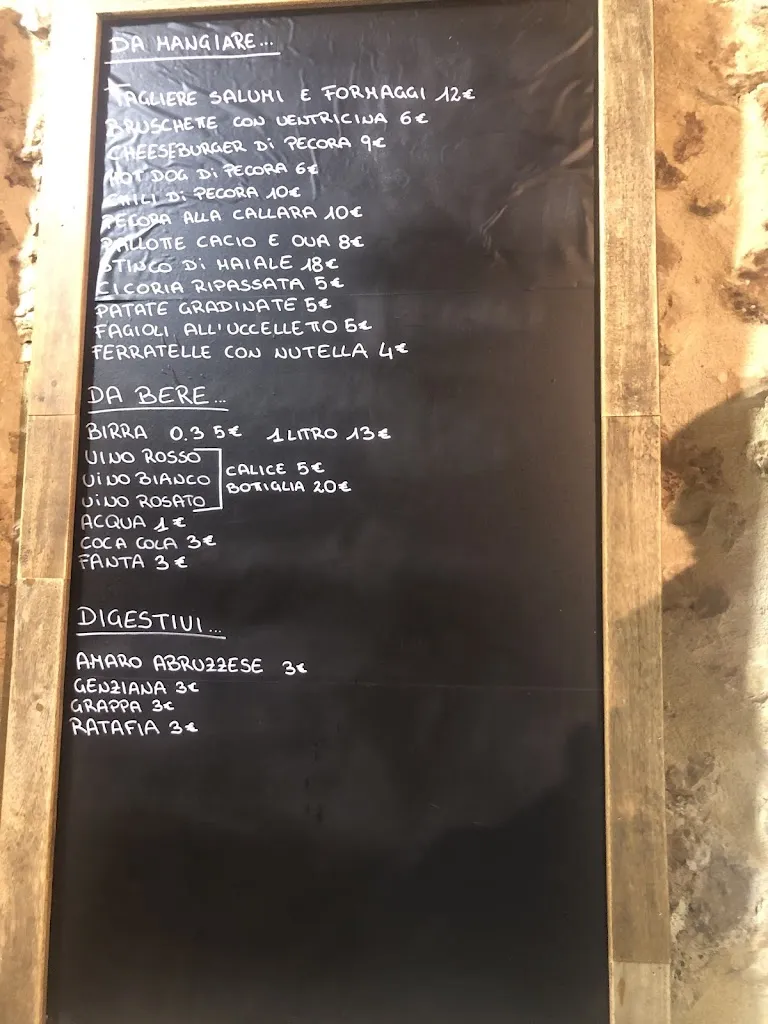 DA MANGIARE...
TAGLIERE SALUMI E FORMAGGI 12€
BRUSCHETTE CON VENTRICINA 6€
CHEESEBURGER DI PECORA 9€
HOT DOG DI PECORA 6€
CHILI DI PECORA 10€
PECORA ALLA CALLARA 10€
PALLOTTE CACIO E OVA 8€
STINCO DI MAIALE 18€
CICORIA RIPASSATA 5€
PATATE GRADINATE 5€
FAGIOLI ALL'UCCELLETTO 5€
FERRATELLE CON NUTELLA 4€
DA BERE...
BIRRA 0.3 5€ 1 LITRO 13€
VINO ROSSO
VINO BIANCO
VINO ROSATO
CALICE 5€
BOTTIGLIA 20€
ACQUA 1€
COCA COLA 3€
FANTA 3€
DIGESTIVI...
AMARO ABRUZZESE 3€
GENZIANA 3€
GRAPPA 3€
RATAFIA 3€